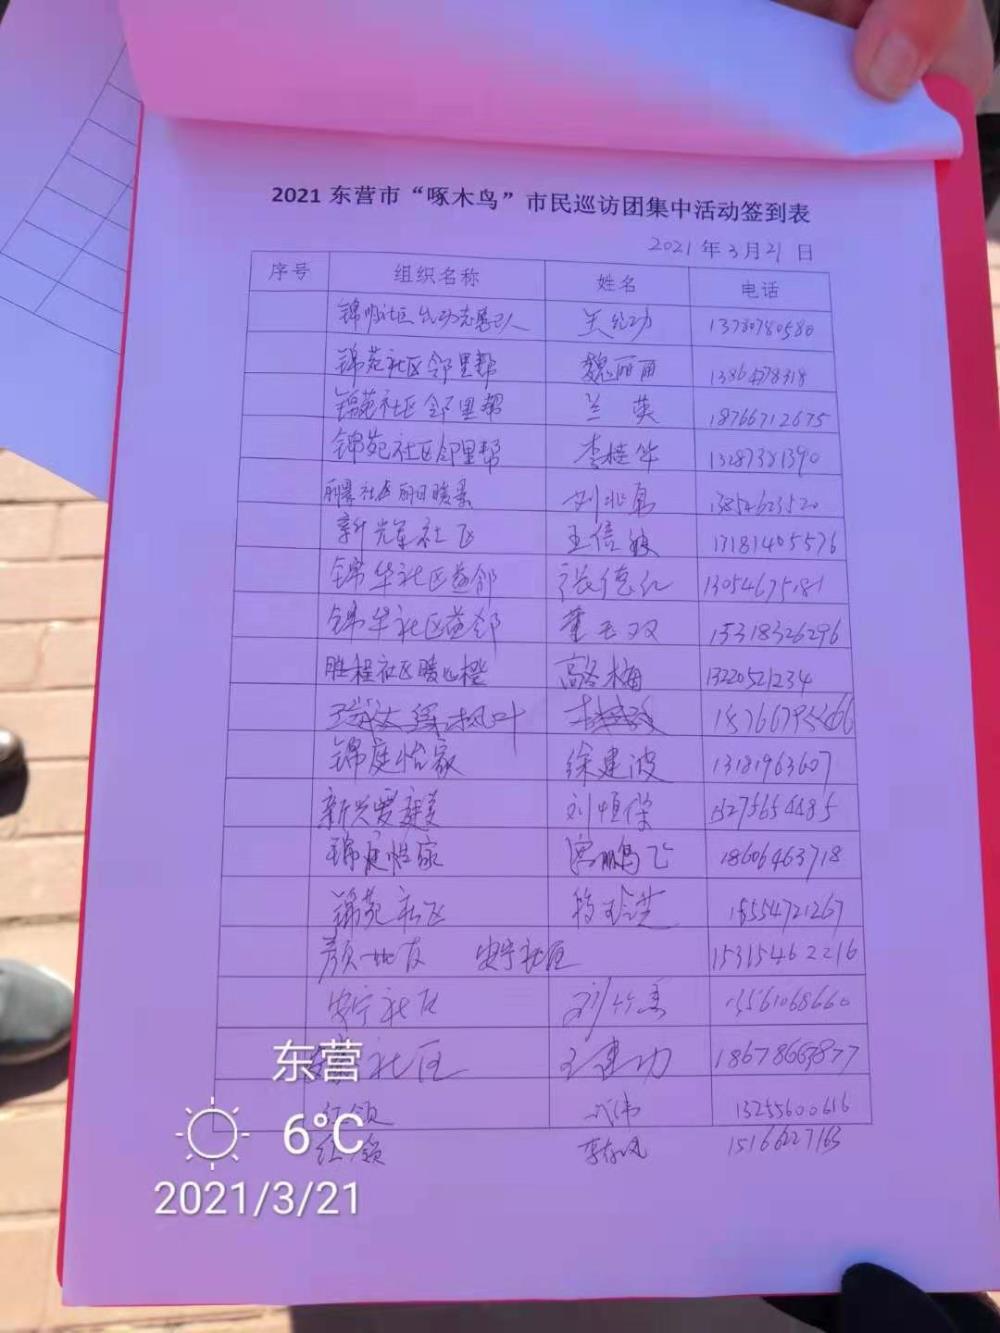 2021 东营市“啄木鸟”市民巡访团集中活动签到表
2021 年 3 月 21 日
序号 组织名称 姓名 电话
13780780580
锦苑社区邻里帮 魏丽丽
锦苑社区邻里帮 兰英 18766712675
锦苑社区邻里帮 李桂华 13287321390
丽景社区丽日暖景 13854623520
社区 王信敏 13181405576
锦华社区益邻 张德仁
锦华社区益邻 董玉双 15318326296
胜程社区暖心橙 高冬梅 13220521234
枫叶
锦庭怡家 徐建波 13181963607
新兴爱 刘恒保 15275654485
锦庭怡家 鹏飞 18606463718
锦苑社区 15554721267
安宁社区 15315462216
安宁社区 刘 13561068660
社区 王建功 18678663877
红领 13255600616
红领 15166227163
东营
6°C
2021/3/21